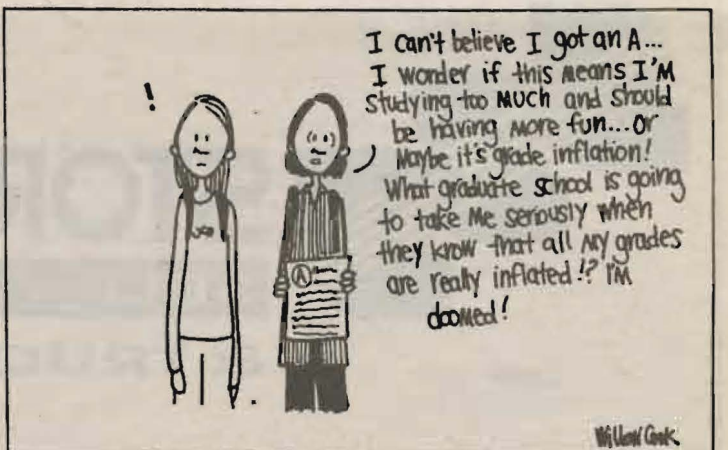 !
I can't believe I got an A...
I wonder if this means I'M
studying too MUCH and should
be having more fun...or
Maybe it's grade inflation!
What graduate school is going
to take Me seriously when
they know that all My grades
are really inflated!? I'M
doomed!
A
Willow Cook